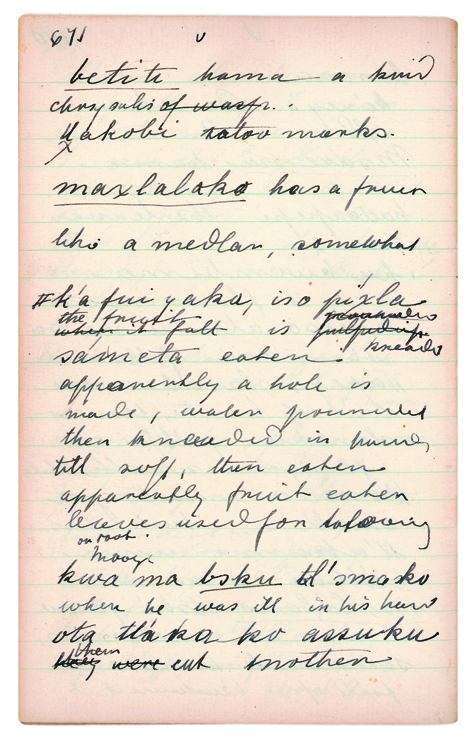 671
betiti hama a kind
chrysalis of wasp.
Yakobi tatoo marks.
maxlaloko has a fruit
like a medlar, somewhat
k'a fui yaka, iso pixla
the fruits
when it fall is
kneads
sameta eaten
apparently a hole is
made, water pounded
then kneaded in hands
till soft, then eaten
apparently fruit eaten
leaves used for
on root
kwa ma bsku tl'smako
when he was ill in his head
ota tláka ko assuku
them
they were cut mother